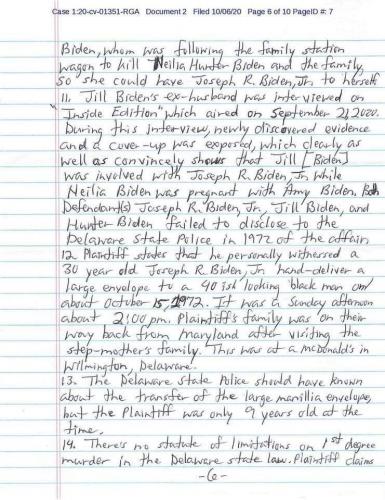 Case 1:20-cv-01351-RGA Document 2 Filed 10/06/20 Page 6 of 10 PageID #: 7
Biden, whom was following the family station
wagon to kill Neilia Hunter Biden and the family,
so she could have Joseph R. Biden, Jr. to herself
11. Jill Biden's ex-husband was interviewed on
"Inside Edition" which aired on September 21, 2020.
During this interview, newly discovered evidence
and a cover-up was exposed, which clearly as
well as convincely shows that Jill [Biden]
was involved with Joseph R. Biden, Jr. while
Neilia Biden was pregnant with Amy Biden. Both
Defendant(s) Joseph R. Biden, Jr., Jill Biden, and
Hunter Biden failed to disclose to the
Delaware State Police in 1972 of the affair.
12. Plaintiff states that he personally witnessed a
30 year old Joseph R. Biden, Jr. hand-deliver a
large envelope to a 40 ish looking black man on/
about October 15, 1972. It was a Sunday afternoon
about 2:00 pm. Plaintiff's family was on their
way back from Maryland after visiting the
step-mother's family. This was at a McDonald's in
Wilmington, Delaware.
13. The Delaware State Police should have known
about the transfer of the large manillia envelope,
but the Plaintiff was only 9 years old at the
time.
14. There's no statute of limitations on 1st degree
murder in the Delaware state law. Plaintiff claims
-6-